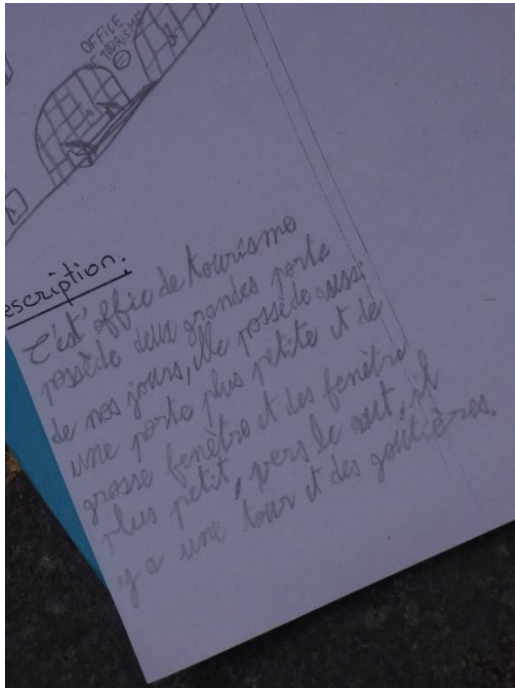 OFFICE
TOURISME
escription:
C'est' offic de tourisme
possède deux grandes porte
de nos jours, elle possède aussi
une porte plus petite et de
grosse fenêtre et des fenêtre
plus petit, vers le out, il
y a une tour et des goutières.